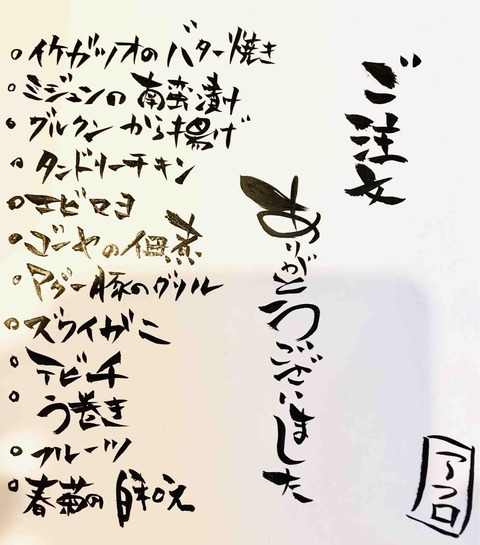 ご注文
ありがとうございました
○ イケガツオのバター焼き
○ ミジュンの南蛮漬け
○ グルクンから揚げ
○ タンドリーチキン
○ エビマヨ
○ ゴーヤの佃煮
○ アグー豚のグリル
○ ズワイがニ
○ テビチ
○ う巻き
○ フルーツ
○ 春菊の白和え